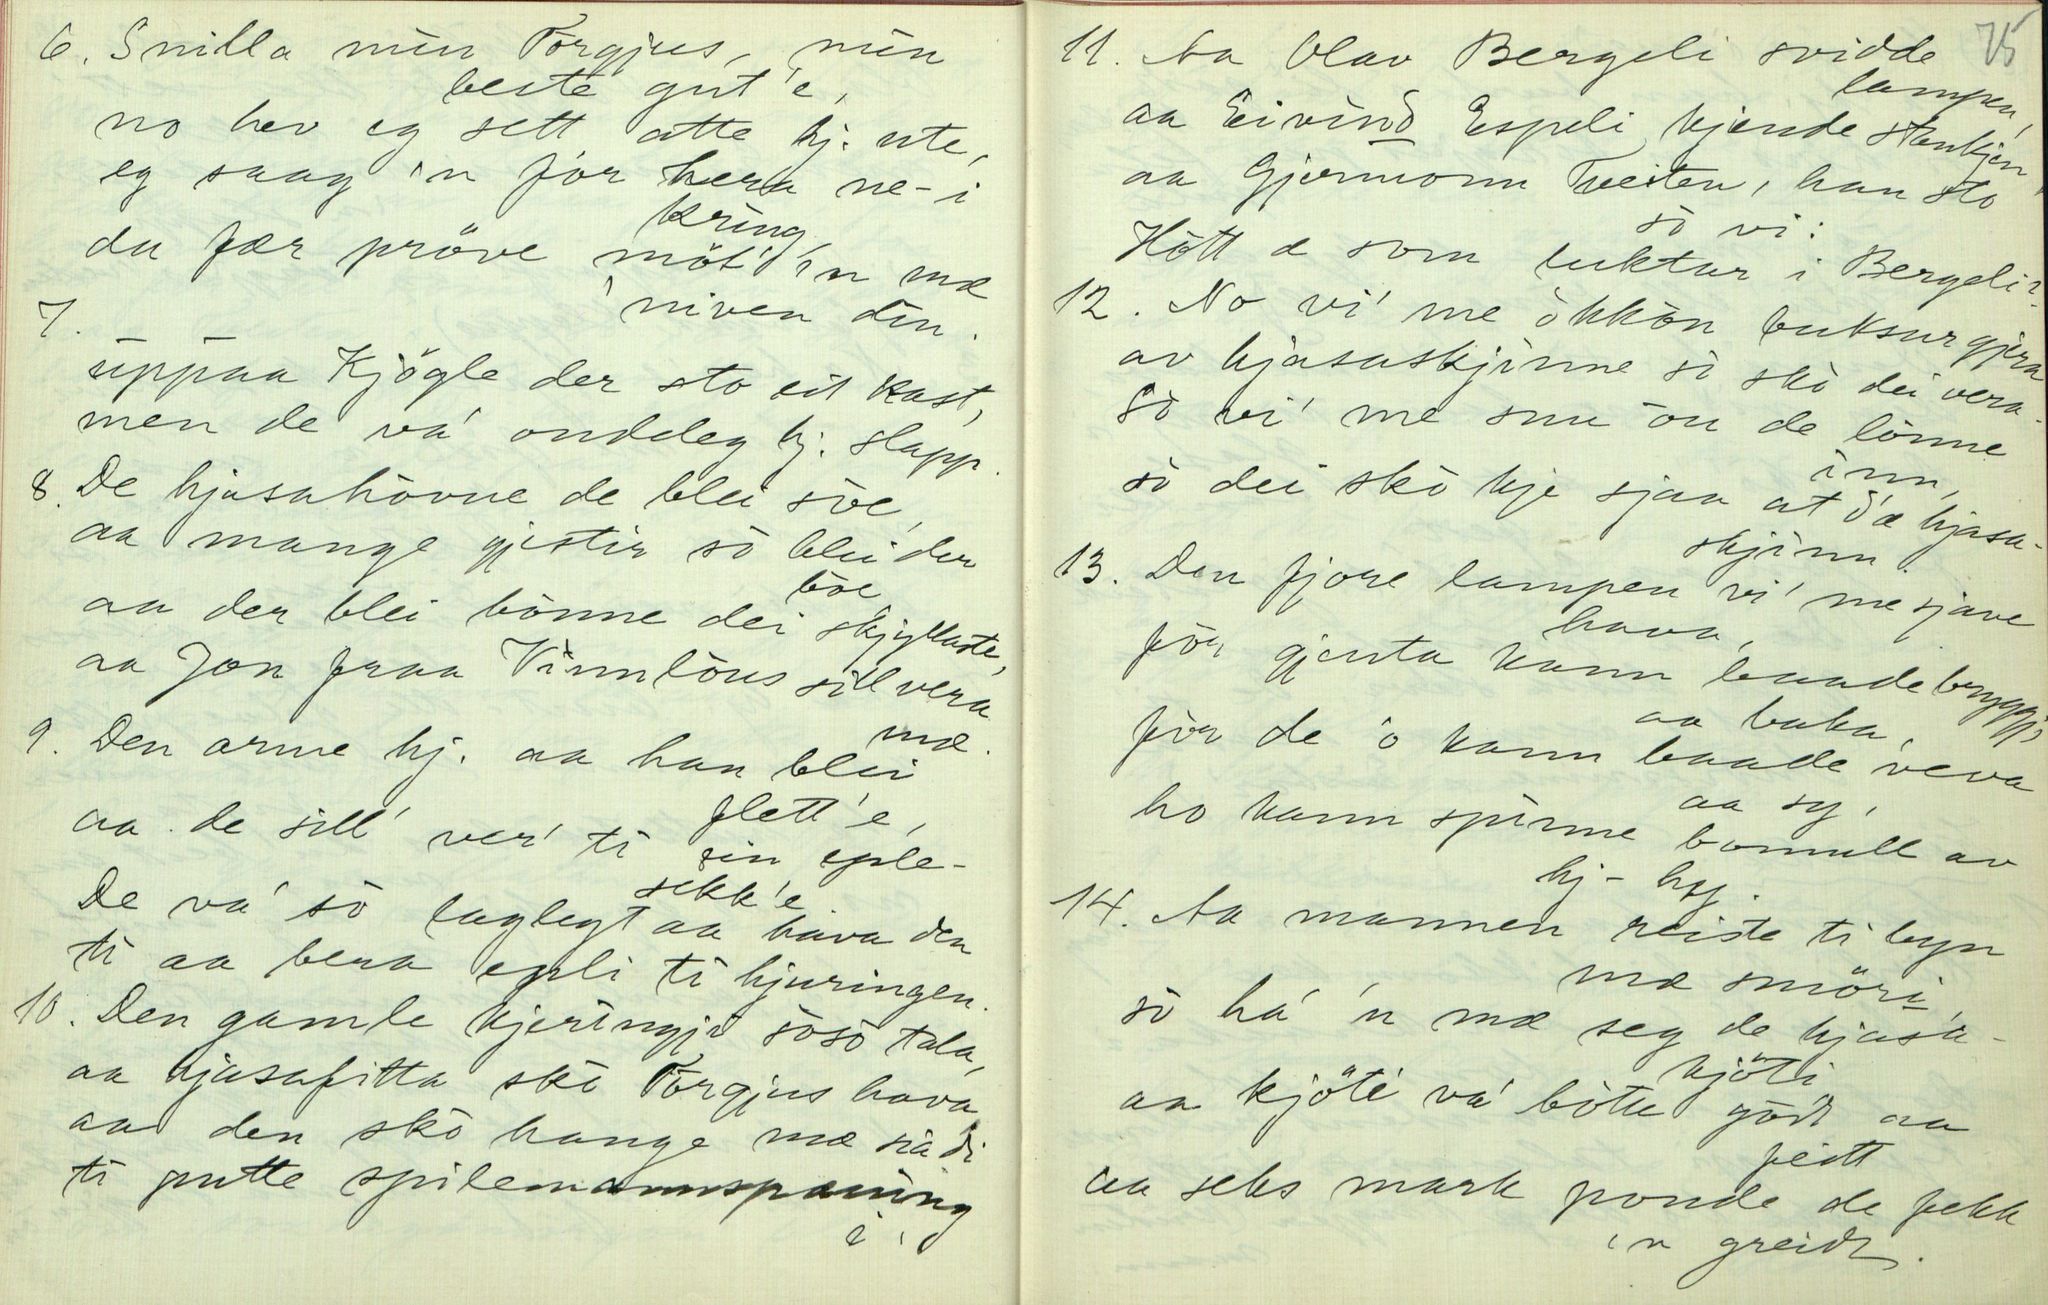 6. Snilla min Torgjus, min
beste gut'e,
no hev eg sett atte hj. ute,
eg saag 'n fór hera ne-i
kring
du fær pröve möt' 'n mæ
niven din.
7.
uppaa Kjögle der sto eit kast,
men de va' onddeg hj. slapp.
8. De hjasahovne de blei söe,
aa mange gjestir so blei der
böe
aa der blei bonne dei skjyldaste,
aa Jon fraa Vinnlöus sill vera
mæ.
9. Den arme hj. aa han blei
flett'e,
aa de sill' ver' ti ein eple-
sekk'e.
De va' so laglegt aa hava den
ti aa bera epli ti hjuringen.
10. Den gamle kjeringji soso tala,
aa hjasafitta sko Torgjus hava
aa den sko hange mæ sia di
ti putte spilemannspæning
i.
75
11. Aa Olav Bergeli svidde
lampen,
aa Eivind Espeli kjende stankjen,
aa Gjermonn Tveiten, han sto
so vi:
Hott æ som luktar i Bergeli?
12. No vi' me okkon buksur gjera
av hjasaskjinne so sko dei vera.
So vi' me snu ou de lonne
inn,
so dei sko kje sjaa at d'æ hjasa-
skjinn.
13. Den fjore lampen vi' me sjave
hava,
for gjenta kann baade bryggje
aa baka,
for de 'o kann baade veva
aa sy,
ho kann spinne bomull av
hj- hy.
14. Aa mannen reiste ti byn
mæ smöri
so ha' 'n mæ seg de hjasa-
kjöti
aa kjöte va' bötte godt aa
feitt
aa seks mark ponde de fekk
'n greidt.